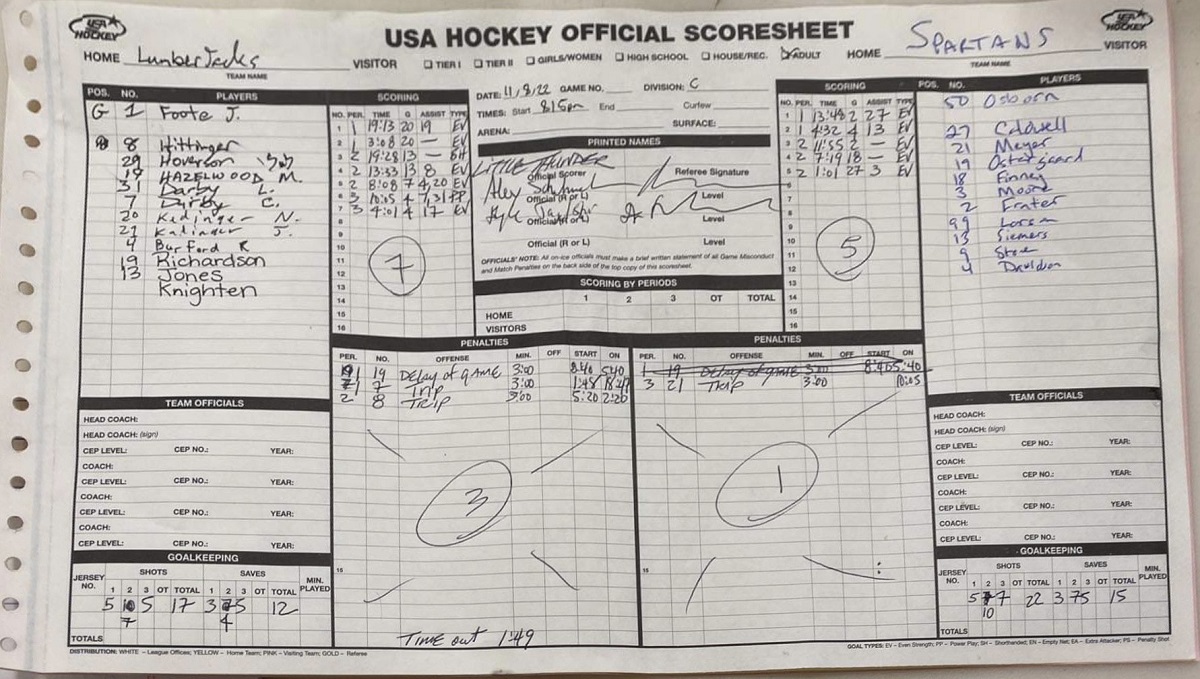 USA HOCKEY
USA HOCKEY OFFICIAL SCORESHEET
USA HOCKEY
HOME LumberJacks VISITOR
TEAM NAME
TIER I TIER II GIRLS/WOMEN HIGH SCHOOL HOUSE/REC. ADULT
HOME SPARTANS VISITOR
TEAM NAME
POS. NO. PLAYERS
G 1 Foote J.
8 Hittinger
29 Hoverson
19 HAZELWOOD M.
31 Darby L.
7 Darby C.
20 Kadinger N.
21 Kadinger J.
4 Burford R
19 Richardson
13 Jones
Knighten
SCORING
NO. PER. TIME G ASSIST TYPE
1 1 19:13 20 19 EV
2 1 3:08 20 — EV
3 2 19:28 13 — SH
4 2 13:33 13 8 EV
5 2 8:08 7 4,20 EV
6 3 10:05 4 7,31 PP
7 3 4:01 4 17 EV
8
9
10
11
12
13
14
15
16
7
DATE: 11/8/22 GAME NO. DIVISION: C
TIMES: Start 8:15pm End Curfew
ARENA: SURFACE:
PRINTED NAMES
LITTLE THUNDER
Official Scorer Referee Signature
Alex
Official (R or L) Level
Kyle
Official (R or L) Level
Official (R or L) Level
OFFICIALS' NOTE: All on-ice officials must make a brief written statement of all Game Misconduct
and Match Penalties on the back side of the top copy of this scoresheet.
SCORING BY PERIODS
1 2 3 OT TOTAL
HOME
VISITORS
SCORING
NO. PER. TIME G ASSIST TYPE
1 1 13:48 2 27 EV
2 1 4:32 4 13 EV
3 2 11:55 2 — EV
4 2 7:19 18 — EV
5 2 1:01 27 3 EV
6
7
8
9
10
11
12
13
14
15
16
5
POS. NO. PLAYERS
50 Osborn
27 Caldwell
21 Meyer
19 Ostergaard
18 Finney
3 Moore
2 Frater
99 Larson
13 Siemers
9 Stone
4 Davidson
PENALTIES
PER. NO. OFFENSE MIN. OFF START ON
1 19 DELAY of GAME 3:00 8:40 5:40
1 7 Trip 3:00 1:48 18:47
2 8 Trip 3:00 5:20 2:20
3
15
TIME out 1:49
PENALTIES
PER. NO. OFFENSE MIN. OFF START ON
1 19 Delay of game 3:00 8:40 5:40
3 21 Trip 3:00 10:05
1
15
TEAM OFFICIALS
HEAD COACH:
HEAD COACH: (sign)
CEP LEVEL: CEP NO.: YEAR:
COACH:
CEP LEVEL: CEP NO.: YEAR:
COACH:
CEP LEVEL: CEP NO.: YEAR:
COACH:
CEP LEVEL: CEP NO.: YEAR:
GOALKEEPING
JERSEY NO. SHOTS SAVES MIN. PLAYED
1 2 3 OT TOTAL 1 2 3 OT TOTAL
5 10 5 17 3 5 12
7 4
TOTALS
TEAM OFFICIALS
HEAD COACH:
HEAD COACH: (sign)
CEP LEVEL: CEP NO.: YEAR:
COACH:
CEP LEVEL: CEP NO.: YEAR:
COACH:
CEP LEVEL: CEP NO.: YEAR:
COACH:
CEP LEVEL: CEP NO.: YEAR:
GOALKEEPING
JERSEY NO. SHOTS SAVES MIN. PLAYED
1 2 3 OT TOTAL 1 2 3 OT TOTAL
5 7 22 3 7 5 15
10
TOTALS
DISTRIBUTION: WHITE – League Offices; YELLOW – Home Team; PINK – Visiting Team; GOLD – Referee
GOAL TYPES: EV – Even Strength; PP – Power Play; SH – Shorthanded; EN – Empty Net; EA – Extra Attacker; PS – Penalty Shot